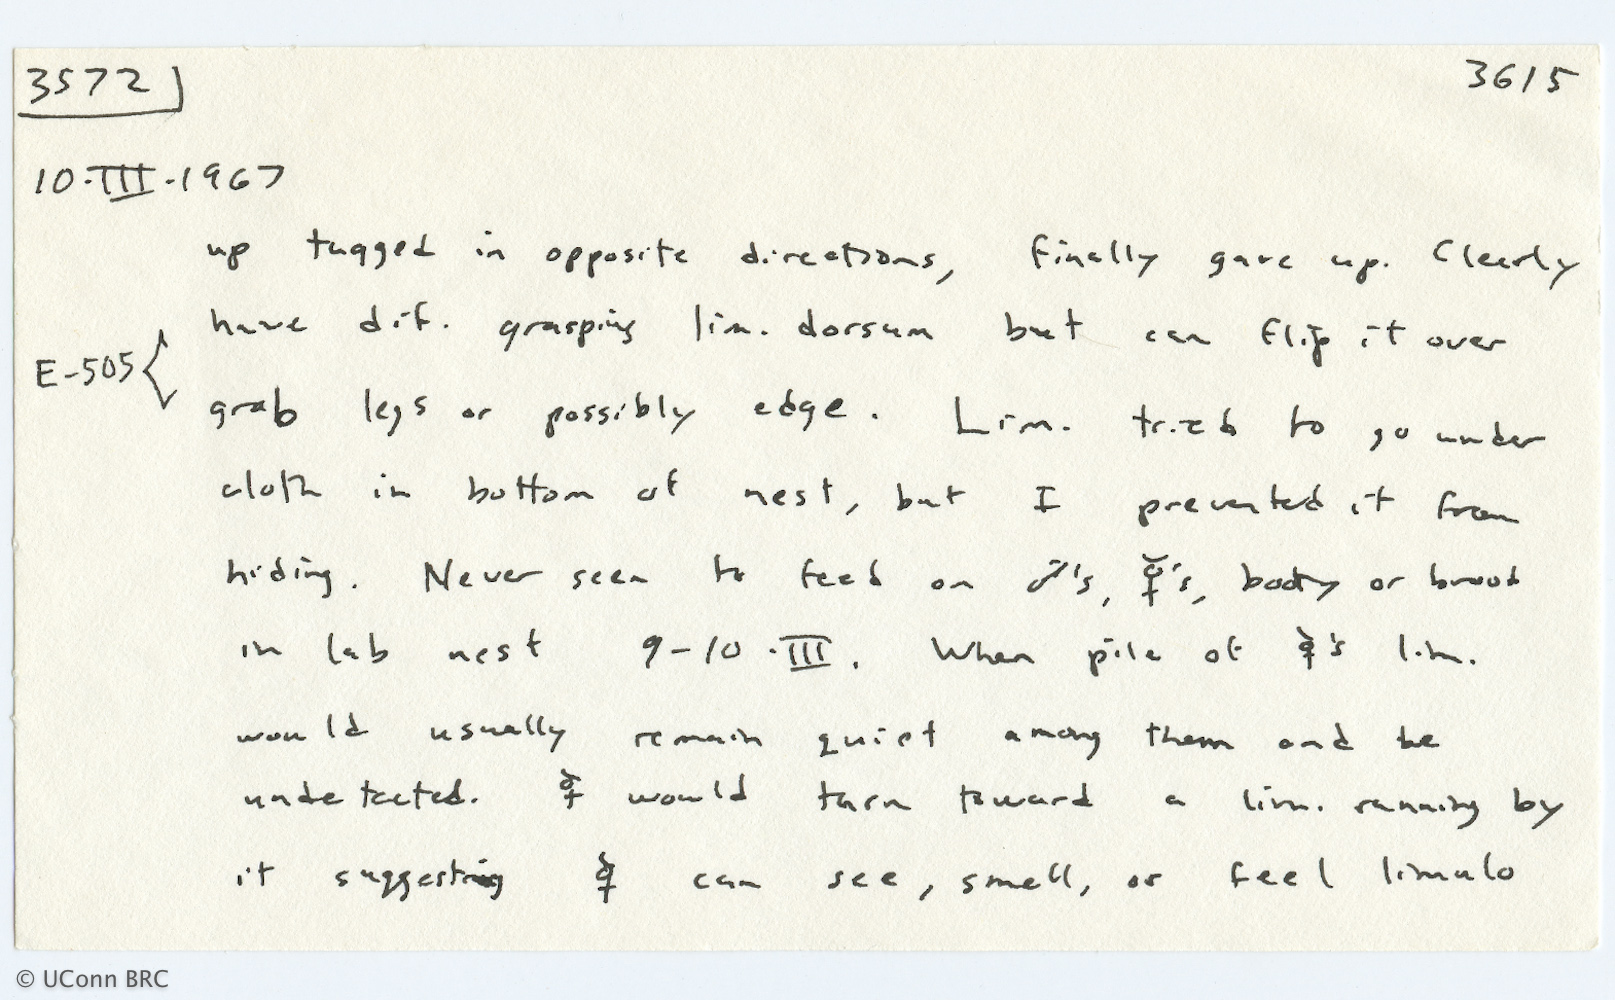 3572 3615
10·III·1967
up tugged in opposite directions, finally gave up. Clearly
have dif. grasping lim. dorsum but can flip it over
E-505
grab legs or possibly edge. Lim. tried to go under
cloth in bottom of nest, but I prevented it from
hiding. Never seen to feed on ♂'s, ☿'s, booty or brood
in lab nest 9-10·III. When pile of ☿'s lim.
would usually remain quiet among them and be
undetected. ☿ would turn toward a lim. running by
it suggesting ☿ can see, smell, or feel limulo
© UConn BRC